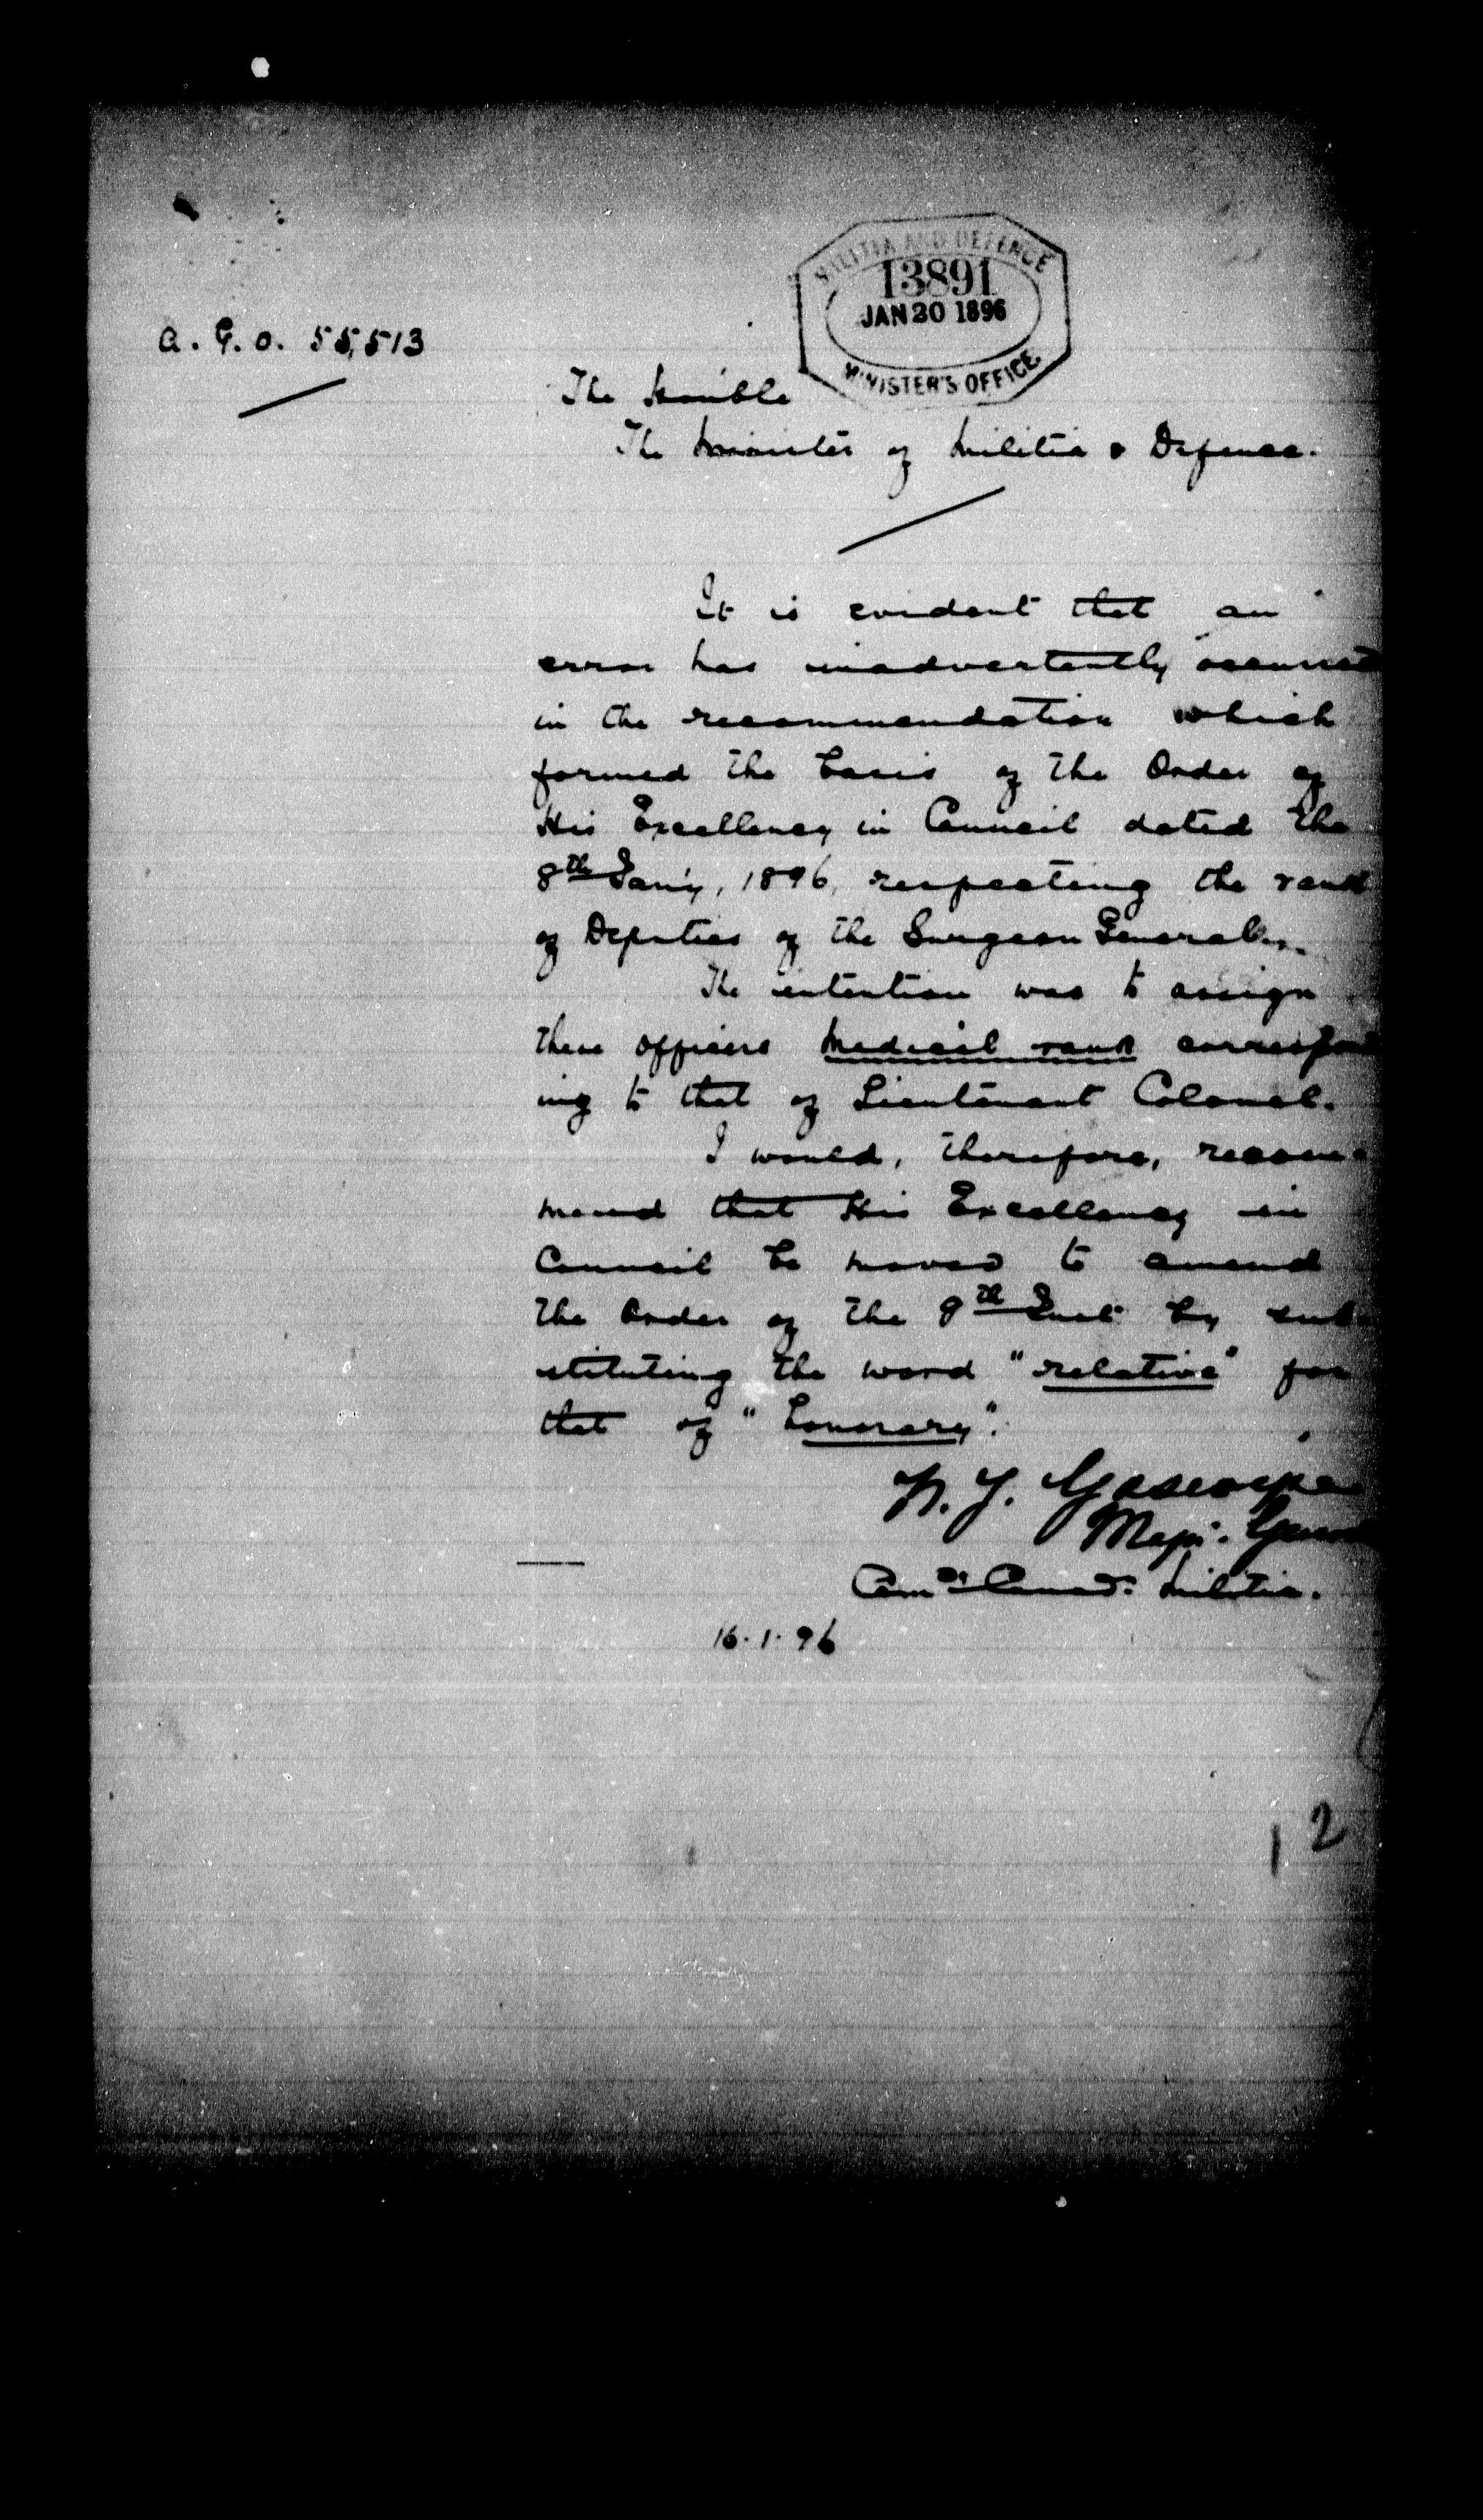 MILITIA AND DEFENCE
13891
JAN 20 1896
MINISTER'S OFFICE
A. G. O. 55,513
The Honible
The Minister of Militia & Defence.
It is evident that an
error has inadvertently occurred
in the recommendation which
formed the basis of the Order of
His Excellency in Council dated the
8th Jany, 1896, respecting the rank
of Deputies of the Surgeon General.
The intention was to assign
these officers medical rank correspond
ing to that of Lieutenant Colonel.
I would, therefore, recom-
mend that His Excellency in
Council be moved to amend
the Order of the 8th Inst by sub-
stituting the word "relative" for
that of "honorary".
Maj. General
Comdg Canad. Militia.
16.1.96
12